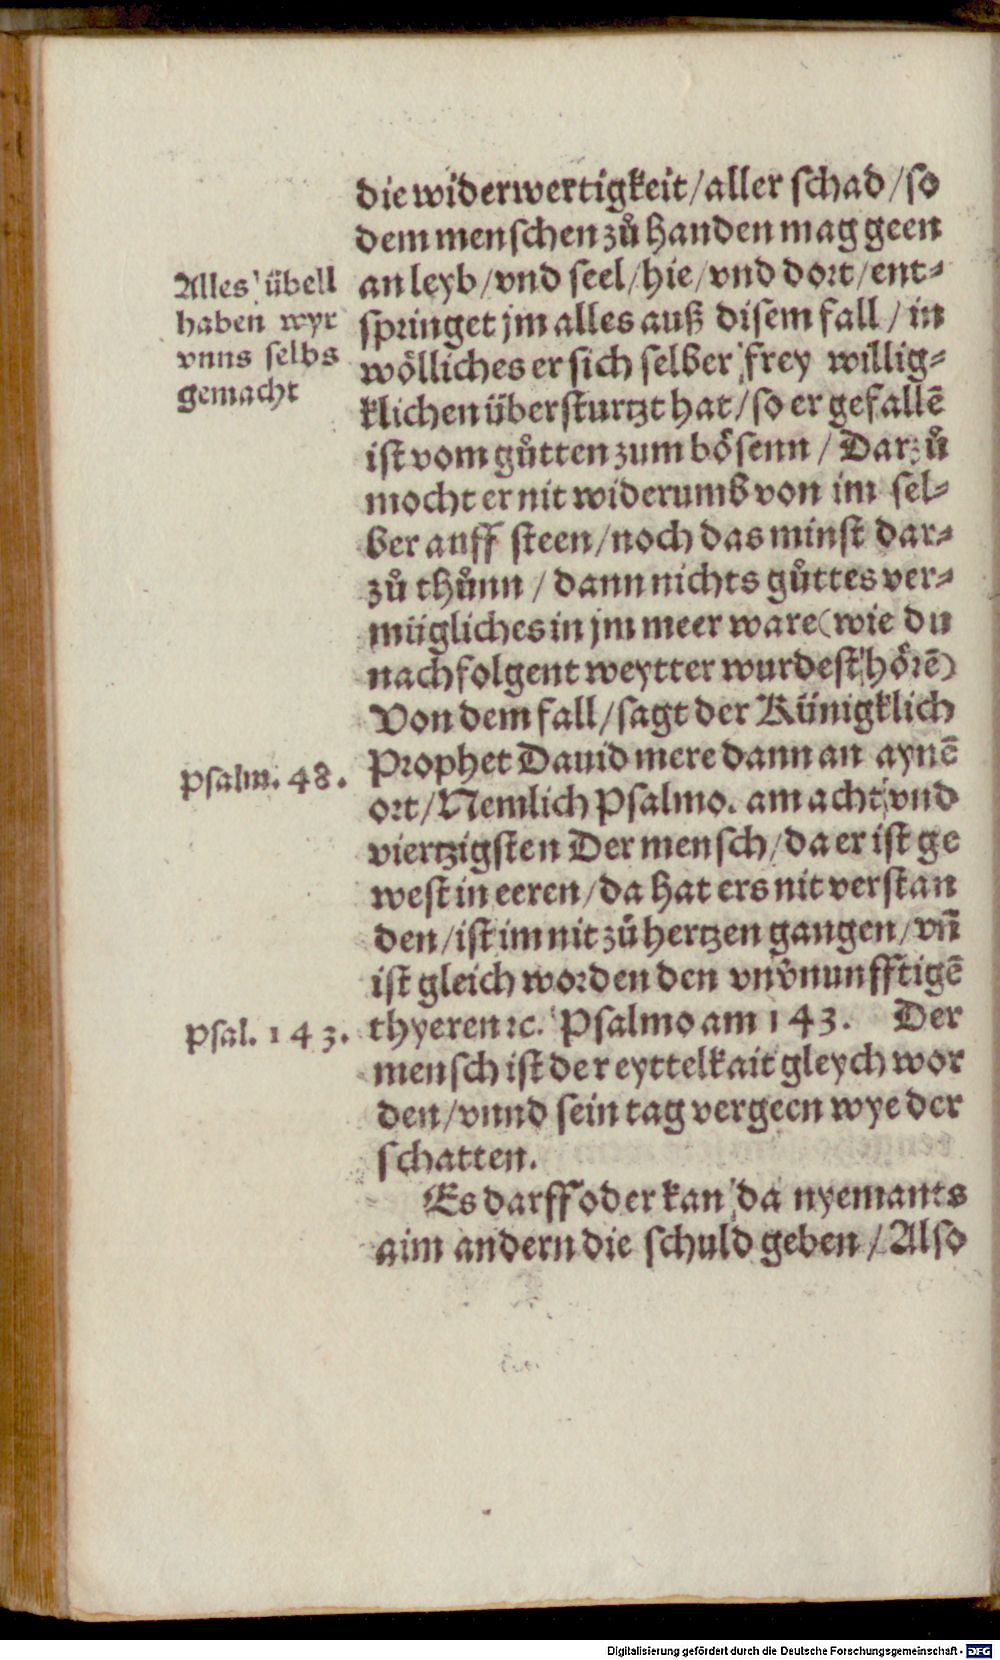 die widerwertigkeit/aller schad/so
dem menschen zů handen mag geen
Alles übell
haben wyr
vnns selbs
gemacht
an leyb/vnd seel/hie/vnd dort/ent-
springet jm alles auß disem fall / in
wölliches er sich selber frey willig-
klichen übersturtzt hat/so er gefallē
ist vom gůtten zum bösenn / Darzů
mocht er nit widerumb von im sel-
ber auff steen/noch das minst dar-
zů thůnn / dann nichts gůttes ver-
mügliches in jm meer ware(wie du
nachfolgent weytter wurdest hörē)
Von dem fall/sagt der Künigklich
Psalm. 48.
Prophet Dauid mere dann an aynē
ort/Nemlich Psalmo. am acht vnd
viertzigsten Der mensch/da er ist ge
west in eeren/da hat ers nit verstan
den/ist im nit zů hertzen gangen/vñ
ist gleich worden den vnv̄nunfftigē
Psal. 143.
thyeren ꝛc. Psalmo am 143. Der
mensch ist der eyttelkait gleych wor
den/vnnd sein tag vergeen wye der
schatten.
Es darff oder kan da nyemants
aim andern die schuld geben / Also
Digitalisierung gefördert durch die Deutsche Forschungsgemeinschaft - DFG